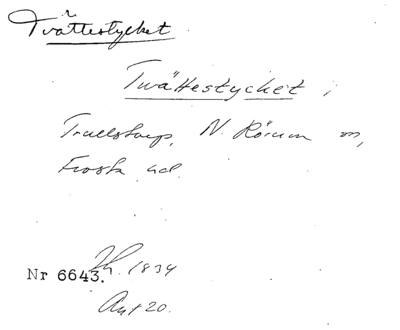 Tvättestycket
Twättestycket,
Trulstorp, N. Rörum sn,
Frosta hd.
Nr 6643. Lh. 1834
Akt 20.